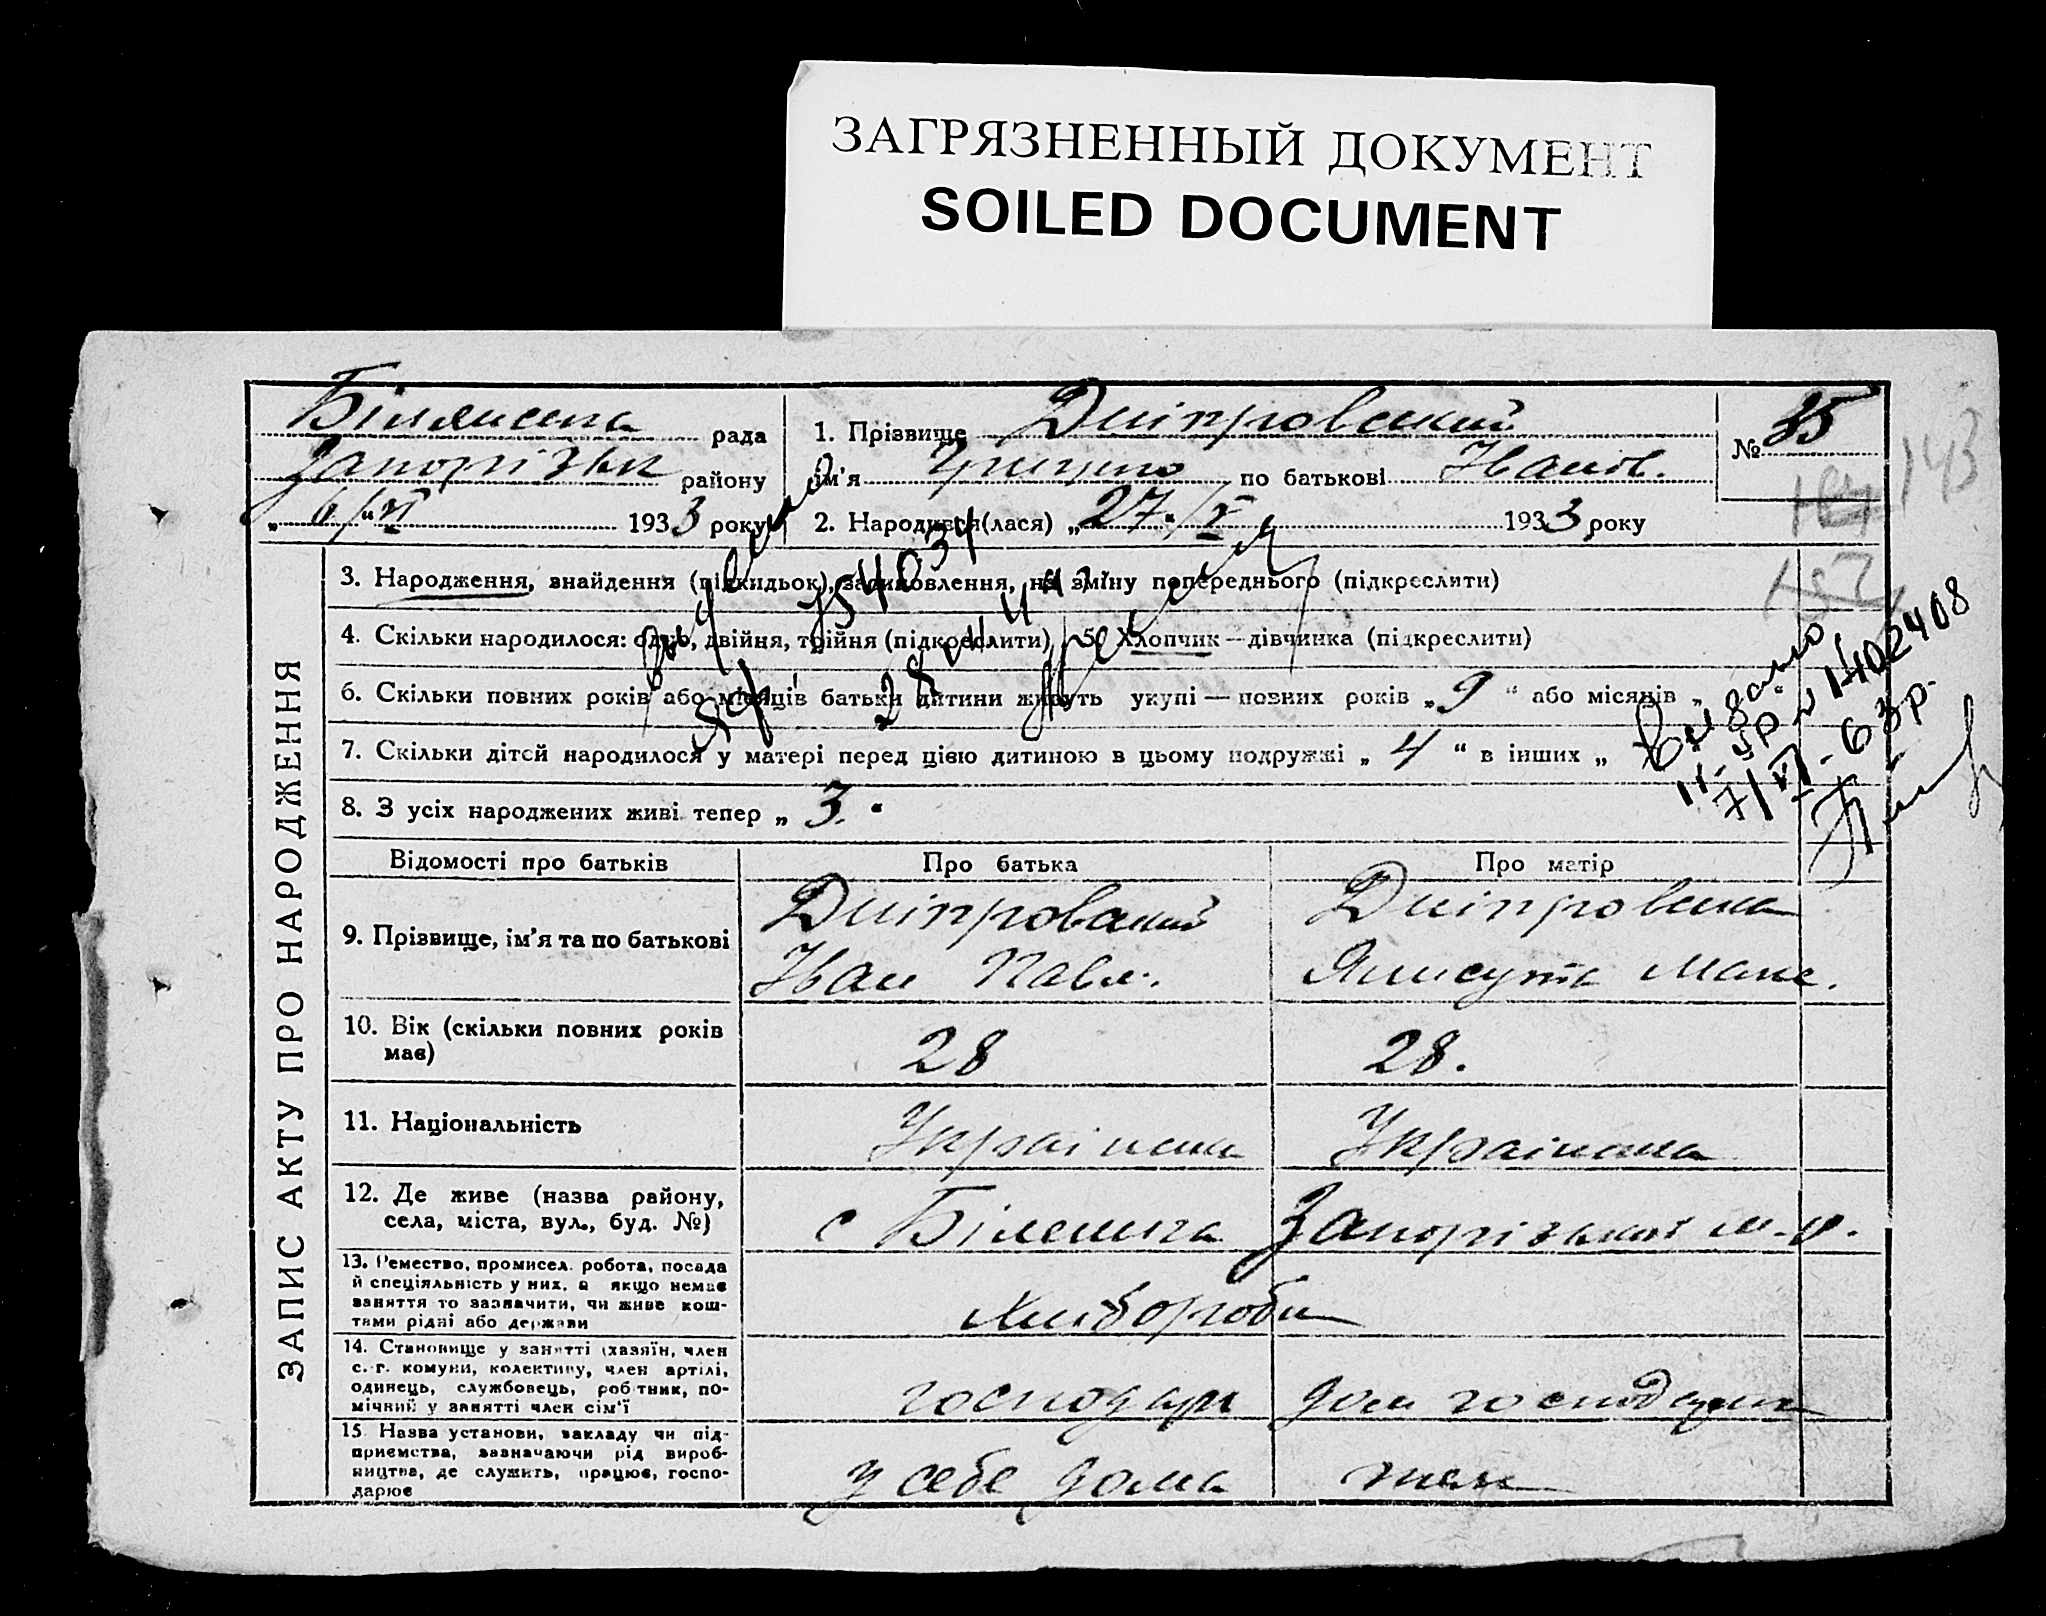 ЗАГРЯЗНЕННЫЙ ДОКУМЕНТ
SOILED DOCUMENT
рада
району
„ 6/VI 1933 року
1. Прізвище Дніпровський
ім'я по батькові Іванов.
2. Народився(лася) „27“/V 1933 року
№ 35
143
ЗАПИС АКТУ ПРО НАРОДЖЕННЯ
3. Народження, знайдення (підкидьок), засиновлення, на зміну попереднього (підкреслити)
4. Скільки народилося: одно, двійня, трійня (підкреслити) 5. Хлопчик — дівчинка (підкреслити)
6. Скільки повних років або місяців батьки дитини живуть укупі — повних років „9“ або місяців „
7. Скільки дітей народилося у матері перед цією дитиною в цьому подружжі „4“ в інших „
8. З усіх народжених живі тепер „3.“
Видано
II-ЖР № 1402408
7/VI-63р.
Відомості про батьків Про батька Про матір
9. Прізвище, ім'я та по батькові
Дніпровський Дніпровська
Іван Павл. Макс.
10. Вік (скільки повних років
має)
28 28.
11. Національність
12. Де живе (назва району,
села, міста, вул., буд. №)
с
13. Ремество, промисел. робота, посада
й спеціяльність у них, а якщо немає
заняття то зазначити, чи живе кош-
тами рідні або держави
14. Становище у занятті (хазяїн, член
с.-г. комуни, колективу, член артілі,
одинець, службовець, робітник, по-
мічний у занятті член сім'ї
господар дом господарка
15. Назва установи, закладу чи під-
приємства, зазначаючи рід вироб-
ництва, де служить, працює, госпо-
дарює
у себе дома теж